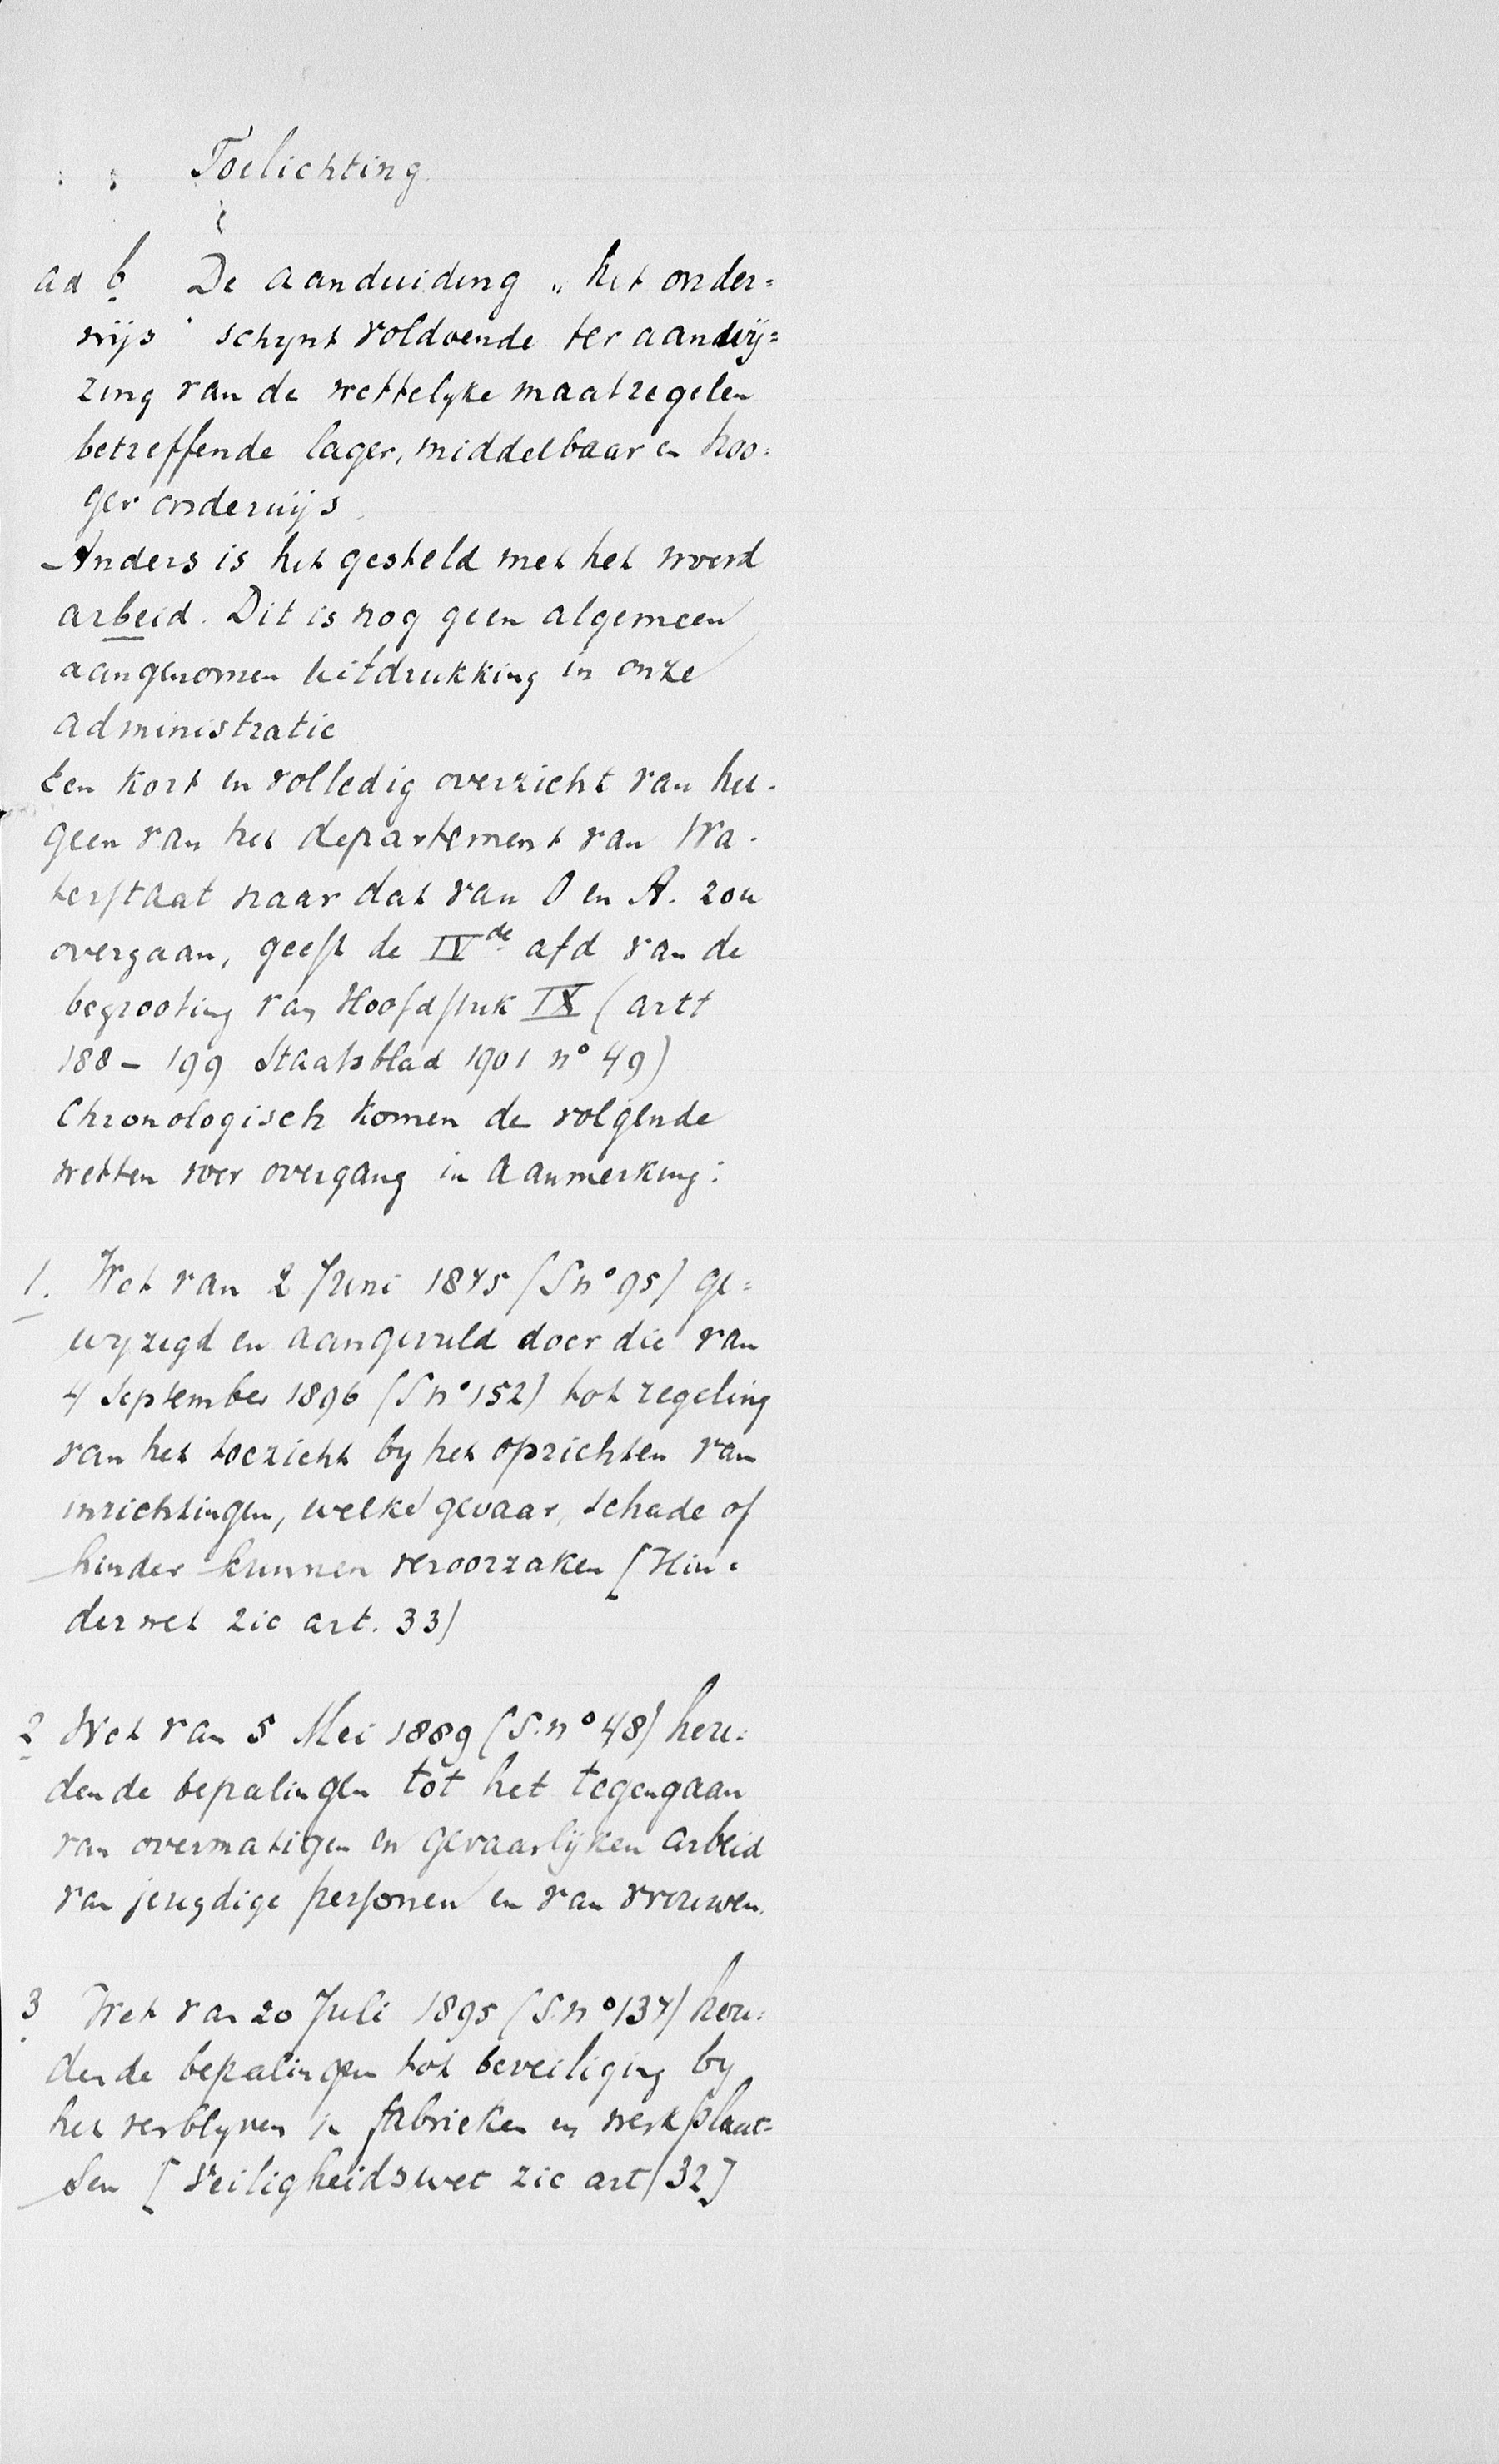 Toelichting.
ad b De aanduiding „het onder=
wijs" schynt voldoende ter aanwij=
zing van de wettelyke maatregelen
betreffende lager, middelbaar en hoo=
ger onderwijs.
Anders is het gesteld met het woord
arbeid. Dit is nog geen algemeen
aangenomen uitdrukking in onze
administratie
Een kort en volledig overzicht van het-
geen van het departement van Wa-
terstaat naar dat van O en A. zou
overgaan, geeft de IVde afd van de
begrooting van Hoofdstuk IX (artt
188 - 199 Staatsblad 1901 no 49)
Chronologisch komen de volgende
wetten voor overgang in aanmerking:
1. Wet van 2 Juni 1875 (S no 95) ge=
wyzigd en aangevuld door die van
4 September 1896 (S no 152) tot regeling
van het toezicht by het oprichten van
inrichtingen, welke gevaar, schade of
hinder kunnen veroorzaken [Hin=
derwet zie art. 33)
2 Wet van 5 Mei 1889 (S. no 48) hou=
dende bepalingen tot het tegengaan
van overmatigen en gevaarlijken arbeid
van jeugdige personen en van vrouwen.
3 Wet van 20 Juli 1895 (S. no 137) hou=
dende bepalingen tot beveiliging by
het verblyven in fabrieken en werkplaat=
sen [Veiligheidswet zie art 32]